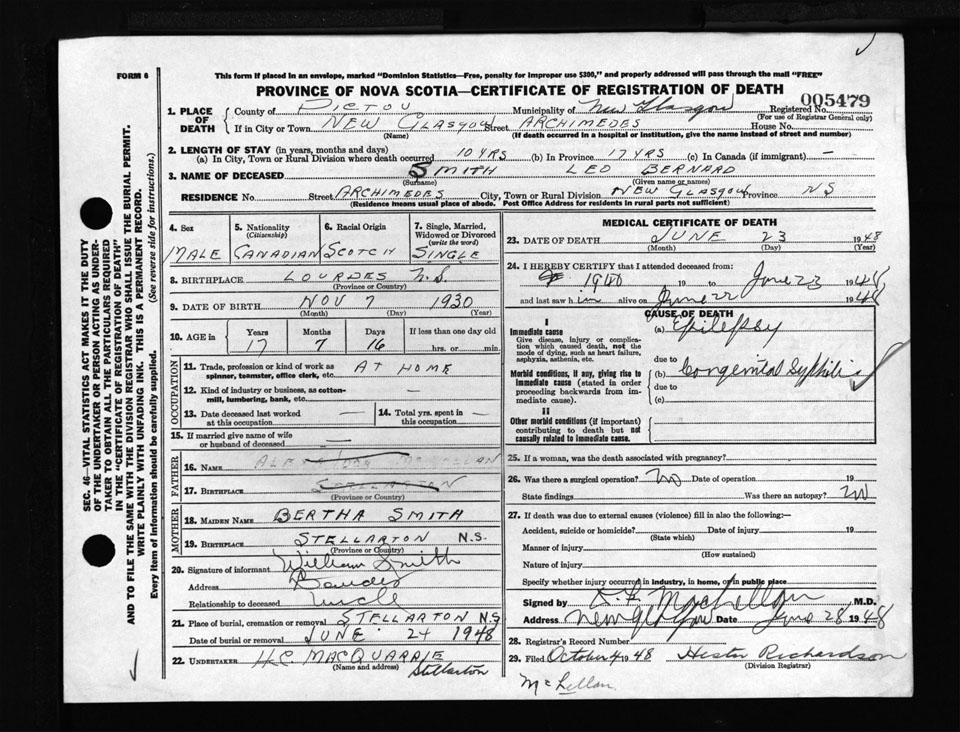 FORM 6
This form if placed in an envelope, marked "Dominion Statistics—Free, penalty for improper use $300," and properly addressed will pass through the mail "FREE"
PROVINCE OF NOVA SCOTIA—CERTIFICATE OF REGISTRATION OF DEATH
005479
1. PLACE OF DEATH
County of PICTOU Municipality of New Glasgow Registered No.
(For use of Registrar General only)
If in City or Town NEW GLASGOW Street ARCHIMEDES House No.
(Name) (If death occurred in a hospital or institution, give the name instead of street and number)
2. LENGTH OF STAY (in years, months and days)
(a) In City, Town or Rural Division where death occurred 10 YRS (b) In Province 17 YRS (c) In Canada (if immigrant) —
3. NAME OF DECEASED SMITH LEO BERNARD
(Surname) (Given name or names)
RESIDENCE No. Street ARCHIMEDES City, Town or Rural Division NEW GLASGOW Province NS
(Residence means usual place of abode. Post Office Address for residents in rural parts not sufficient)
4. Sex
5. Nationality (Citizenship)
6. Racial Origin
7. Single, Married, Widowed or Divorced (write the word)
MALE CANADIAN SCOTCH SINGLE
8. BIRTHPLACE LOURDES N.S.
(Province or Country)
9. DATE OF BIRTH NOV 7 1930
(Month) (Day) (Year)
10. AGE in Years Months Days If less than one day old
17 7 16 hrs. or min.
OCCUPATION
11. Trade, profession or kind of work as spinner, teamster, office clerk, etc. AT HOME
12. Kind of industry or business, as cotton-mill, lumbering, bank, etc. —
13. Date deceased last worked at this occupation —
14. Total yrs. spent in this occupation —
15. If married give name of wife or husband of deceased —
FATHER
16. NAME
17. BIRTHPLACE STELLARTON
(Province or Country)
MOTHER
18. MAIDEN NAME BERTHA SMITH
19. BIRTHPLACE STELLARTON N.S.
(Province or Country)
20. Signature of informant William Smith
Address
Relationship to deceased Uncle
21. Place of burial, cremation or removal STELLARTON N.S.
Date of burial or removal JUNE 24 1948
22. UNDERTAKER H.C. MACQUARRIE
(Name and address) Stellarton
MEDICAL CERTIFICATE OF DEATH
23. DATE OF DEATH JUNE 23 1948
(Month) (Day) (Year)
24. I HEREBY CERTIFY that I attended deceased from:
1940 19 to June 23 1948
and last saw him alive on June 22 1948
CAUSE OF DEATH
I
Immediate cause
Give disease, injury or complication which caused death, not the mode of dying, such as heart failure, asphyxia, asthenia, etc.
(a) Epilepsy
due to
Morbid conditions, if any, giving rise to immediate cause (stated in order proceeding backwards from immediate cause).
(b) Congenital Syphilis
due to
(c)
II
Other morbid conditions (if important) contributing to death but not causally related to immediate cause.
25. If a woman, was the death associated with pregnancy?
26. Was there a surgical operation? No Date of operation 19
State findings Was there an autopsy? No
27. If death was due to external causes (violence) fill in also the following:—
Accident, suicide or homicide? Date of injury 19
(State which)
Manner of injury
(How sustained)
Nature of injury
Specify whether injury occurred in industry, in home, or in public place
Signed by MacLellan M.D.
Address New Glasgow Date June 28 1948
28. Registrar's Record Number
29. Filed October 4 1948 Hester Richardson
(Division Registrar)
McLellan
SEC. 46—VITAL STATISTICS ACT MAKES IT THE DUTY
OF THE UNDERTAKER OR PERSON ACTING AS UNDER-
TAKER TO OBTAIN ALL THE PARTICULARS REQUIRED
IN THE "CERTIFICATE OF REGISTRATION OF DEATH"
AND TO FILE THE SAME WITH THE DIVISION REGISTRAR WHO SHALL ISSUE THE BURIAL PERMIT.
WRITE PLAINLY WITH UNFADING INK. THIS IS A PERMANENT RECORD.
Every item of information should be carefully supplied. (See reverse side for instructions.)